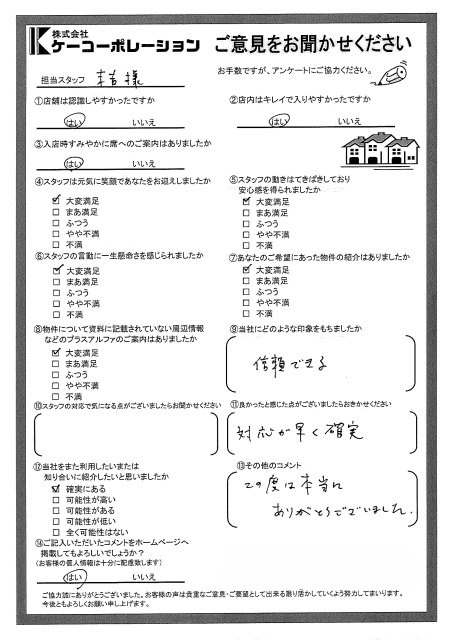 株式会社
ケーコーポレーション
ご意見をお聞かせください
お手数ですが、アンケートにご協力ください。
担当スタッフ 様
①店舗は認識しやすかったですか
はい いいえ
②店内はキレイで入りやすかったですか
はい いいえ
③入店時すみやかに席へのご案内はありましたか
はい いいえ
④スタッフは元気に笑顔であなたをお迎えしましたか
☑ 大変満足
□ まあ満足
□ ふつう
□ やや不満
□ 不満
⑤スタッフの動きはてきぱきしており
安心感を得られましたか
☑ 大変満足
□ まあ満足
□ ふつう
□ やや不満
□ 不満
⑥スタッフの言動に一生懸命さを感じられましたか
☑ 大変満足
□ まあ満足
□ ふつう
□ やや不満
□ 不満
⑦あなたのご希望にあった物件の紹介はありましたか
☑ 大変満足
□ まあ満足
□ ふつう
□ やや不満
□ 不満
⑧物件について資料に記載されていない周辺情報
などのプラスアルファのご案内はありましたか
☑ 大変満足
□ まあ満足
□ ふつう
□ やや不満
□ 不満
⑨当社にどのような印象をもちましたか
信頼できる
⑩スタッフの対応で気になる点がございましたらお聞かせください
⑪良かったと感じた点がございましたらおきかせください
対応が早く確実
⑫当社をまた利用したいまたは
知り合いに紹介したいと思いましたか
☑ 確実にある
□ 可能性が高い
□ 可能性がある
□ 可能性が低い
□ 全く可能性はない
⑬その他のコメント
この度は本当に
ありがとうございました。
⑭ご記入いただいたコメントをホームページへ
掲載してもよろしいでしょうか?
(お客様の個人情報は十分に配慮致します)
はい いいえ
ご協力誠にありがとうございました。お客様の声は貴重なご意見・ご要望として出来る限り活かしていくよう努力してまいります。
今後ともよろしくお願い申し上げます。